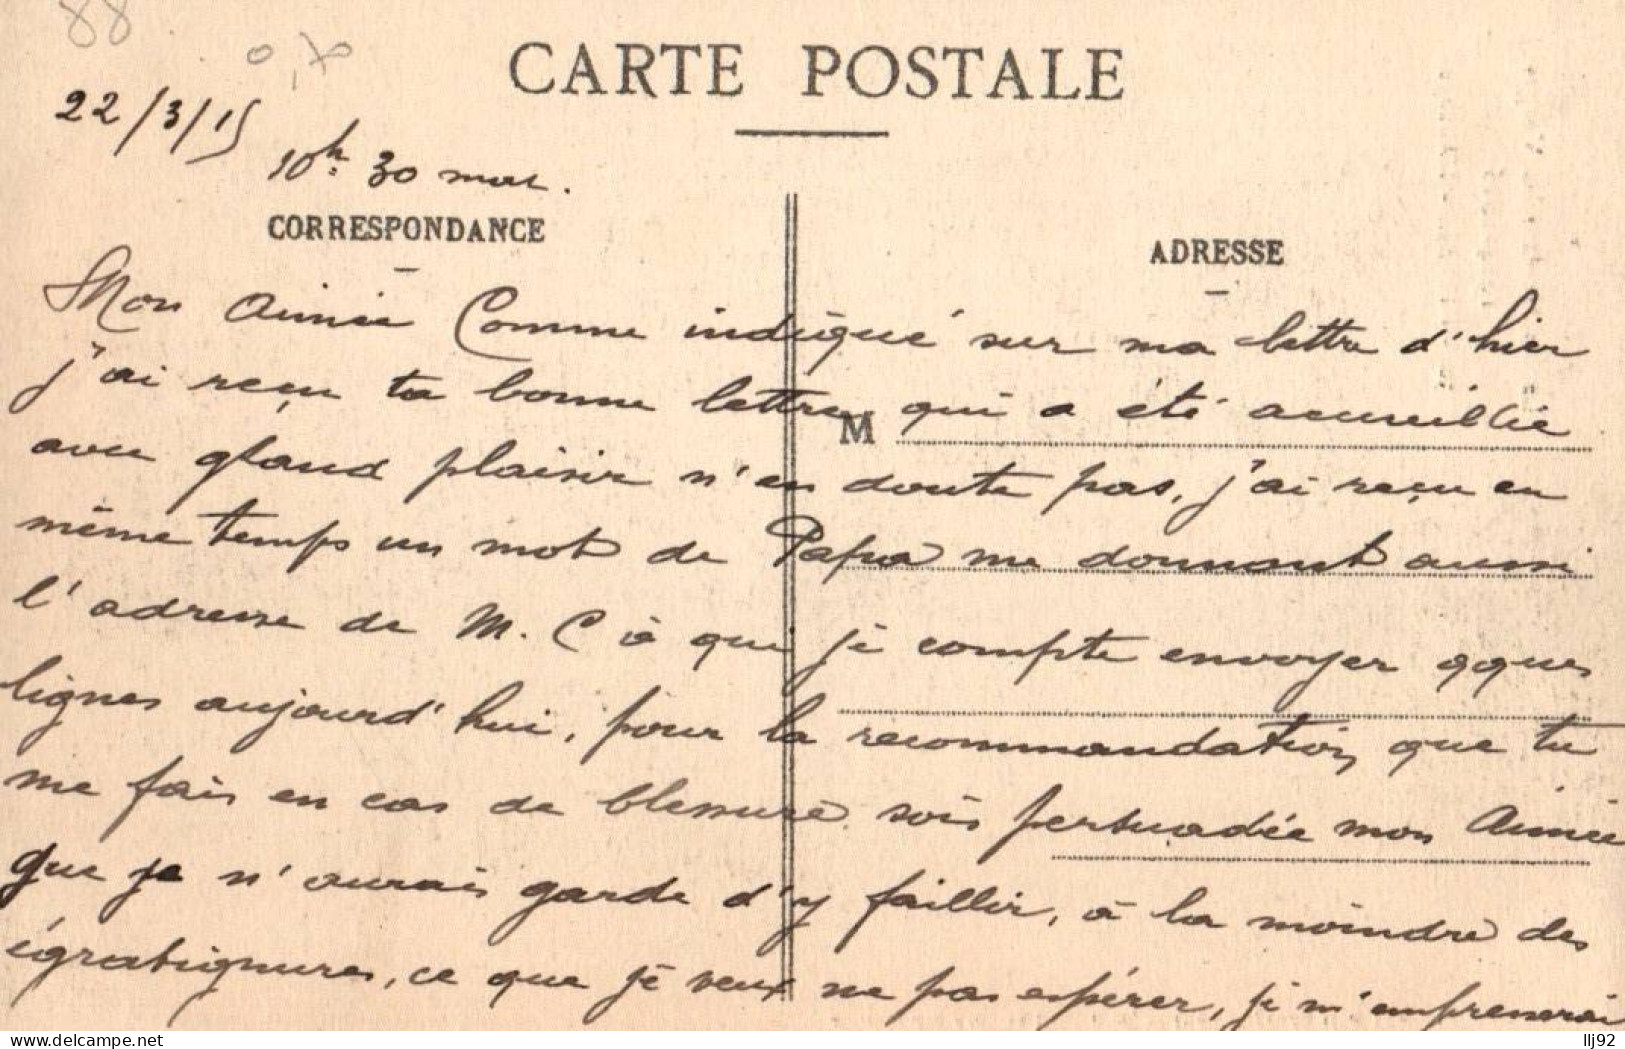 88
0,70
CARTE POSTALE
22/3/15
10h: 30 mat.
CORRESPONDANCE
ADRESSE
Mon Aimée Comme indiqué sur ma lettre d'hier
j'ai reçu ta bonne lettre qui a été accueillie
M
avec gland plaisir n'en doute pas, j'ai reçu en
même temps un mot de Papa me donnant aussi
l'adresse de M. C à qui je compte envoyer qques
lignes aujourd'hui, pour la recommandation que tu
me fais en cas de blessure sois persuadée mon Aimée
que je n'aurais garde d'y faillir, à la moindre des
égratignures, ce que je veux ne pas espérer, je m'empresserai
delcampe.net
llj92